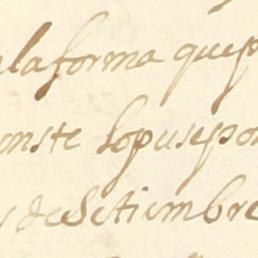 la forma que p
onste lo puse por
de Setiembre